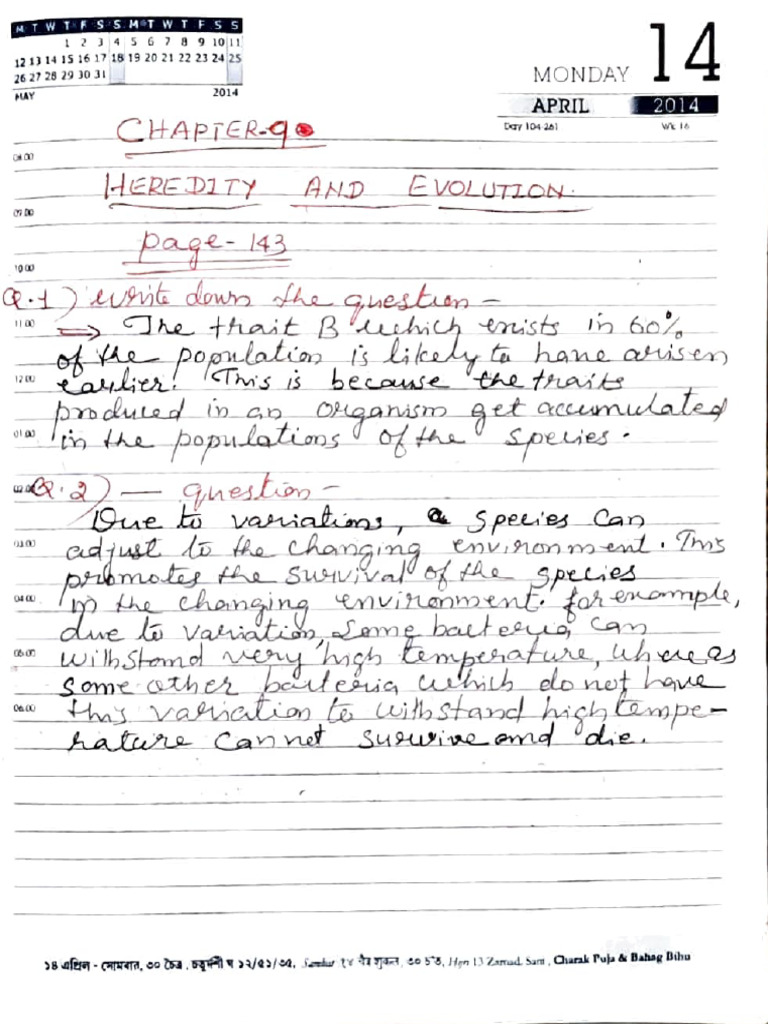 M T W T F S S M T W T F S S
1 2 3 4 5 6 7 8 9 10 11
12 13 14 15 16 17 18 19 20 21 22 23 24 25
26 27 28 29 30 31
MAY 2014
MONDAY 14
APRIL 2014
Day 104-261 Wk 16
CHAPTER-9
08.00
HEREDITY AND EVOLUTION.
09.00
page-143
10.00
Q.1) write down the question -
11.00
⇒ The trait B which exists in 60%
of the population is likely to have arisen
12.00
earlier. This is because the traits
produced in an organism get accumulated
01.00
in the populations of the species.
02.00
Q.2) — question -
Due to variations, a species can
03.00
adjust to the changing environment. This
promotes the survival of the species
04.00
in the changing environment. for example,
due to variation, some bacteria can
05.00
withstand very high temperature, where as
some other bacteria which do not have
06.00
this variation to withstand high tempe-
rature cannot survive and die.
১৪ এপ্রিল - সোমবার, ৩০ চৈত্র, চতুর্দশী ঘ ১২/৫১/৩৫, Samhat १४ चैत्र शुक्ल, ৩০ চ'ত, Hijri 13 Zamad. Sani, Charak Puja & Bahag Bihu